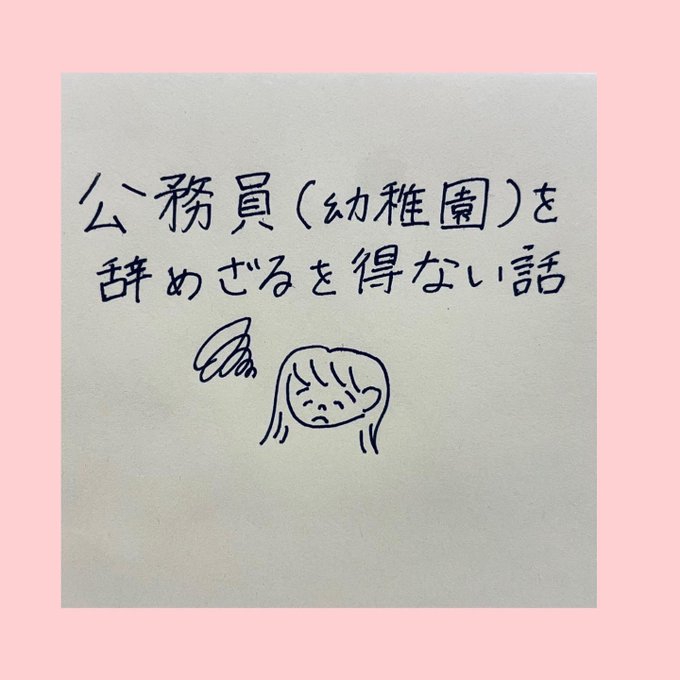 公務員(幼稚園)を
辞めざるを得ない話